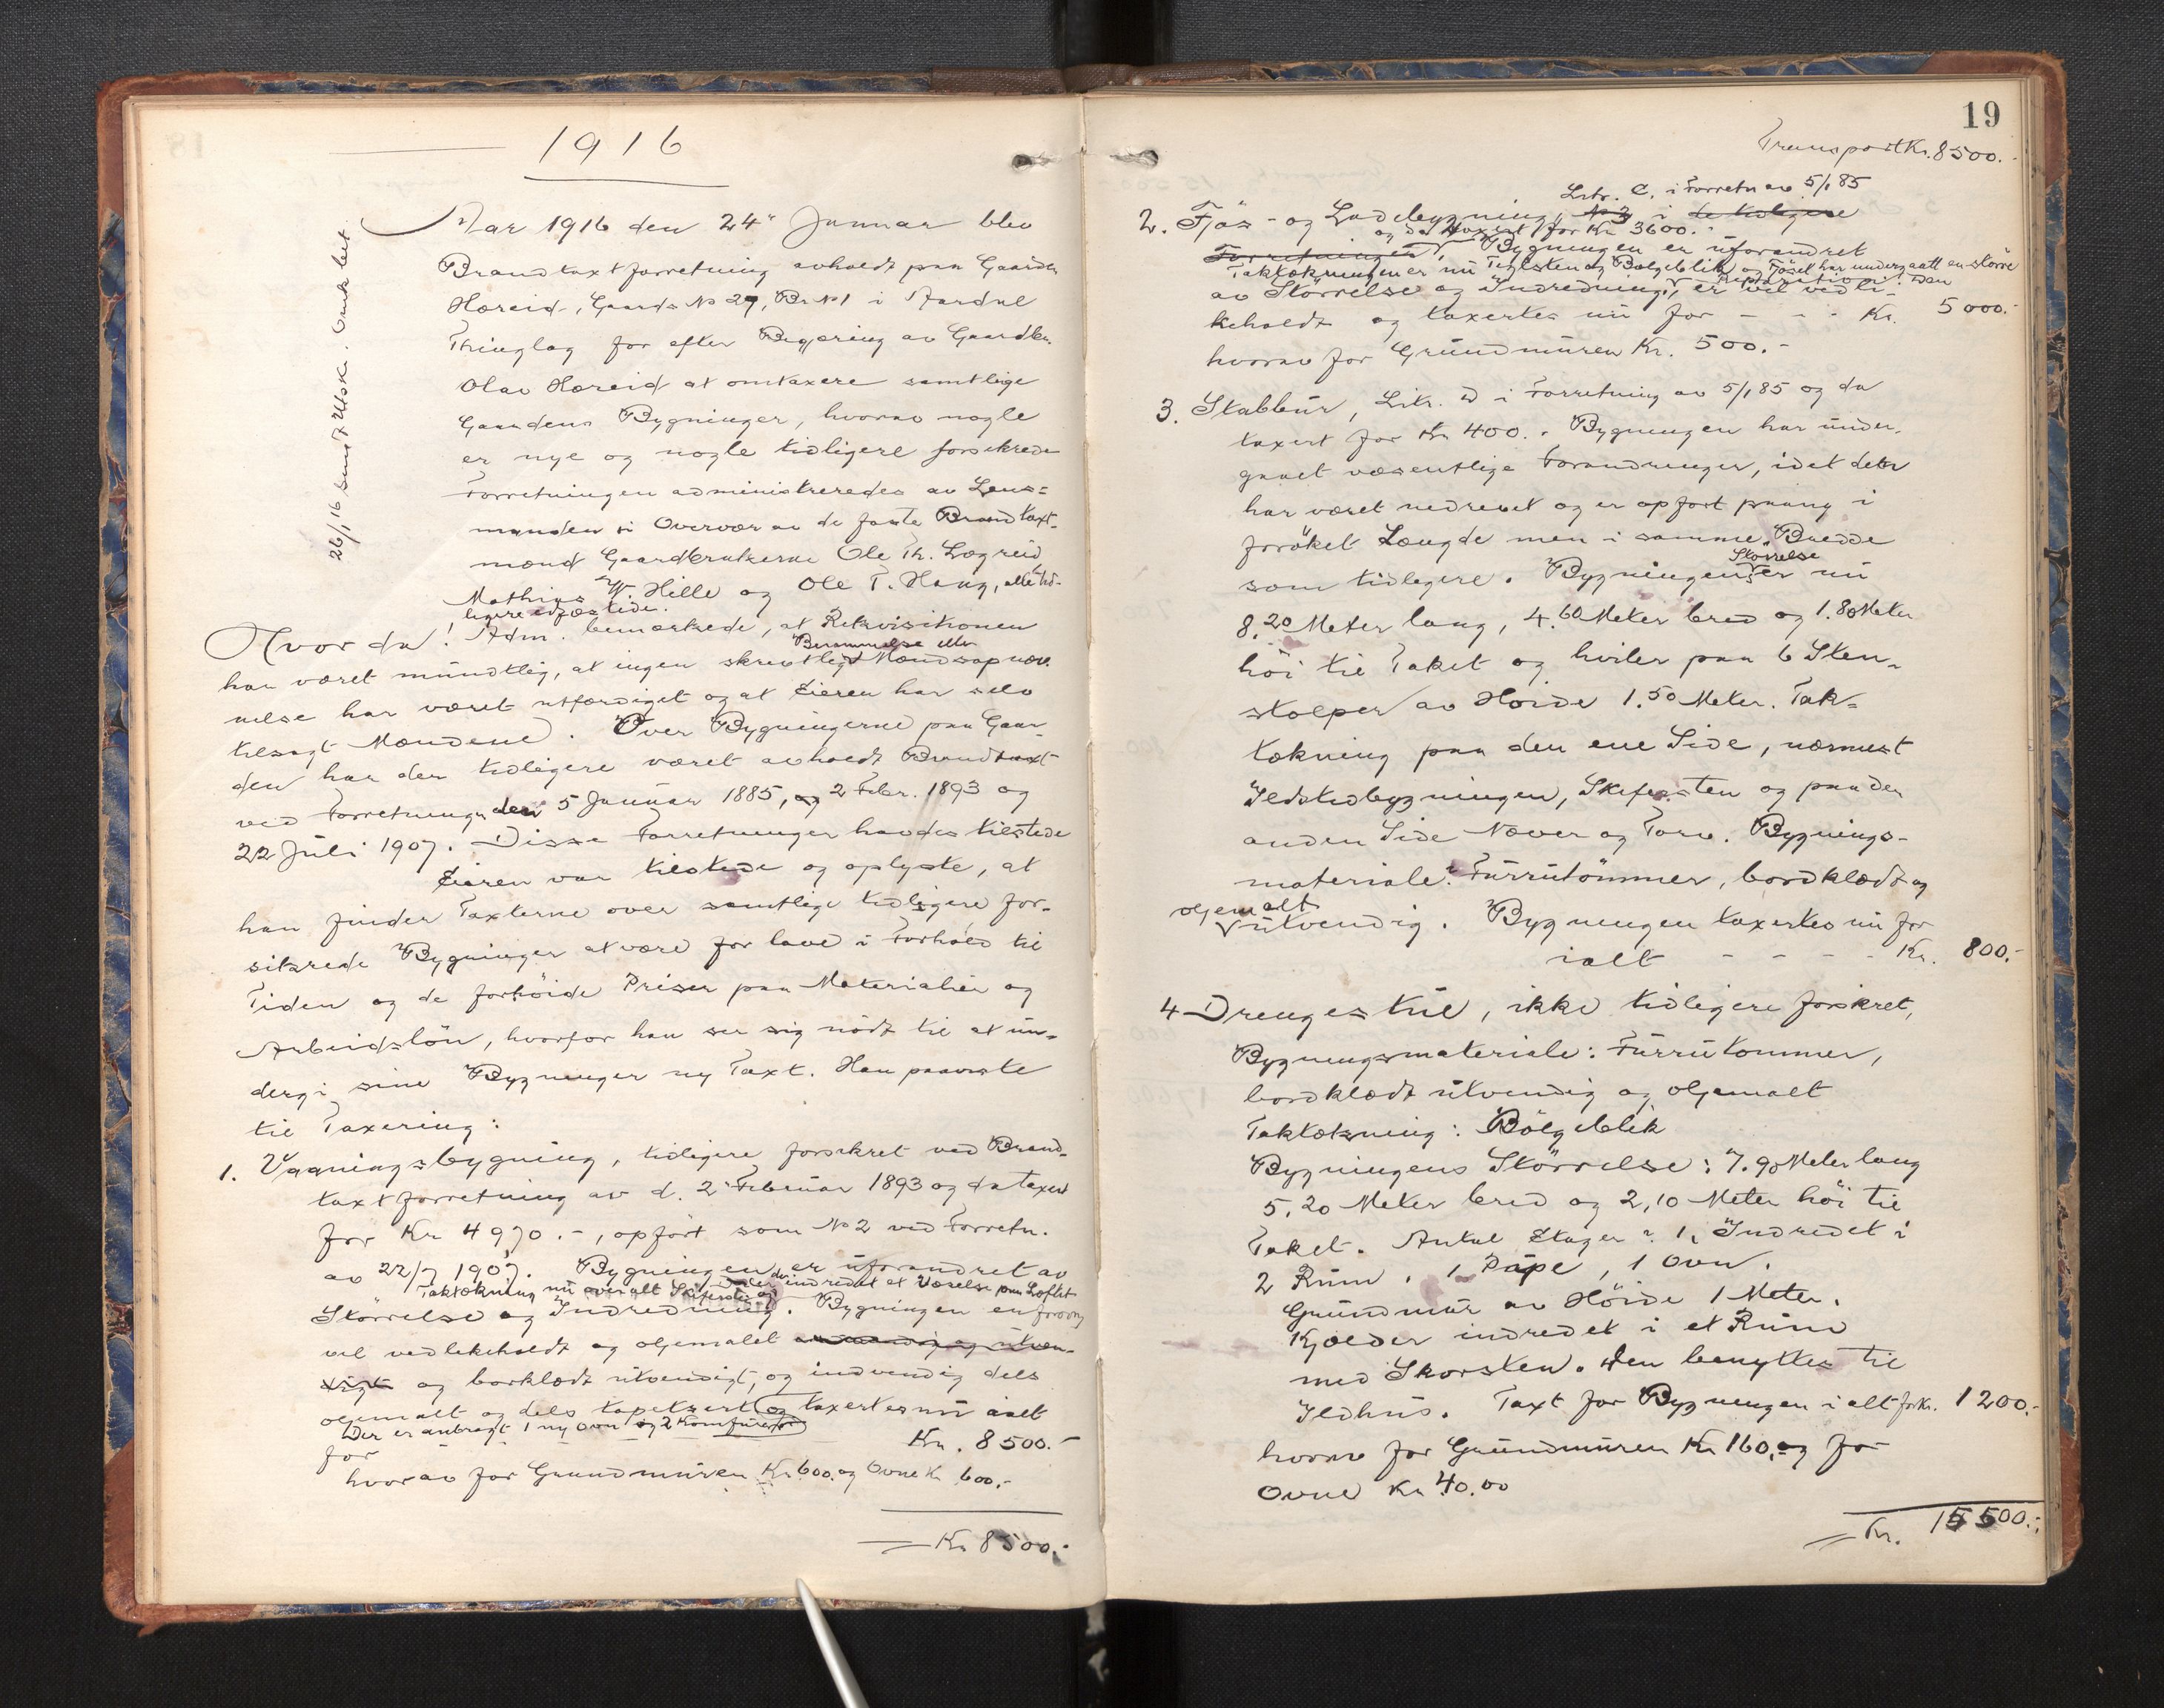 1916
26/1 16 sendt Utsk. Enk let
Aar 1916 den 24' Januar blev
Brandtaxtforretning avholdt paa Gaarden
Hæreid, Gaards No 27, Br. No 1 i Aardal
Thinglag for efter Begjæring av Gaardbr.
Olav Hæreid at omtaxere samtlige
Gaardens Bygninger, hvorav nogle
er nye og nogle tidligere forsikrede
Forretningen administreredes av Lens=
manden i Overvær av de faste Brandtaxt-
mænd Gaardbrukerne Ole Th. Lægreid
Mathias W. Hille og Ole T. Haug, alle tid-
ligere edfæstede.
Hvorda! Adm. bemærkede, at Rekvisitionen
Berammelse eller
har været mundtlig, at ingen skrevtligt Mændsopnæv-
nelse har været utfærdiget og at Eieren har selv
tilsagt Mændene. Over Bygningerne paa Gaar-
den har der tidligere været avholdt Brandtaxt
ved Forretninger den 5 Januar 1885, og 2 Febr. 1893 og
22 Juli 1907. Disse Forretninger havdes tilstede
Eieren var tilstede og oplyste, at
han finder Taxterne over samtlige tidligere for-
sikrede Bygninger at være for lave i Forhold til
Tiden og de forhöide Priser paa Materialier og
Arbeidslön, hvorfor han ser sig nödt til at un-
dergi sine Bygninger ny Taxt. Han paaviste
til Taxering:
1. Vaaningsbygning, tidligere forsikret ved Brand-
taxtforretning av d. 2 Februar 1893 og da taxert
for Kr 4970.-, opfört som No 2 ved Forretn.
av 22/7 1907. Bygningen er uforandret av
Taktækning nu overalt Skifersten og der indredet et Værelse paa Loftet
Störrelse og Indredning. Bygningen er forövrig
vel vedlikeholdt og oljemalet
og bordklædt utvendigt, og indvendig dels
oljemalt og dels tapetsert og taxertes nu ialt
Der er anbragt 1 ny Ovn og 2 Komfurer
for Kr. 8500.-
hvorav for Grundmuren Kr 600. og Ovne Kr 600.-
Kr 8500.-
19
Transport Kr. 8500.-
Litr. C. i Forretn av 5/1 85
2. Fjös- og Ladebygning, No 3 i de tidligere
og da taxert for Kr 3600.-
Forretninger, Bygningen er uforandret
Taktækningen er nu Teglsten og Bølgeblik og Fjöset har undergaatt en större
Reparation. Den
av Störrelse og Indredning, er vel vedli-
keholdt og taxertes nu for - - - Kr. 5000.-
hvorav for Grundmuren Kr. 500.-
3. Stabbur, Litr. D i Forretning av 5/1 85 og da
taxert for Kr 400.. Bygningen har under-
gaaet væsentlige Forandringer, idet den
har været nedrevet og er opfört paany i
forøket Længde men i samme Bredde
Störrelse
som tidligere. Bygningens er nu
8.20 Meter lang, 4.60 Meter bred og 1.80 Meter
höi til Taket og hviler paa 6 Sten-
stolper av Høide 1.50 Meter. Tak-
tækning paa den ene Side, nærmest
Ildstedbygningen, Skifersten og paa den
anden Side Næver og Torv. Bygnings-
materiale: Furrutömmer, bordklædt og
oljemalt
utvendig. Bygningen taxertes nu for
ialt - - - - Kr. 800.-
4 Drengestue, ikke tidligere forsikret,
Bygningsmateriale: Furrutömmer,
bordklædt utvendig og oljemalt
Taktækning: Bölgeblik
Bygningens Störrelse: 7.90 Meter lang
5.20 Meter bred og 2,10 Meter höi til
Taket. Antal Etager: 1, Indredet i
2 Rum. 1 Pipe, 1 Ovn.
Grundmur av Höide 1 Meter.
Kjælder indredet i et Rum
med Skorsten. Den benyttes til
Ildhus. Taxt for Bygningen ialt for Kr. 1200.-
hvorav for Grundmuren Kr 160,- og for
Ovne Kr 40.00
Kr. 15500.-